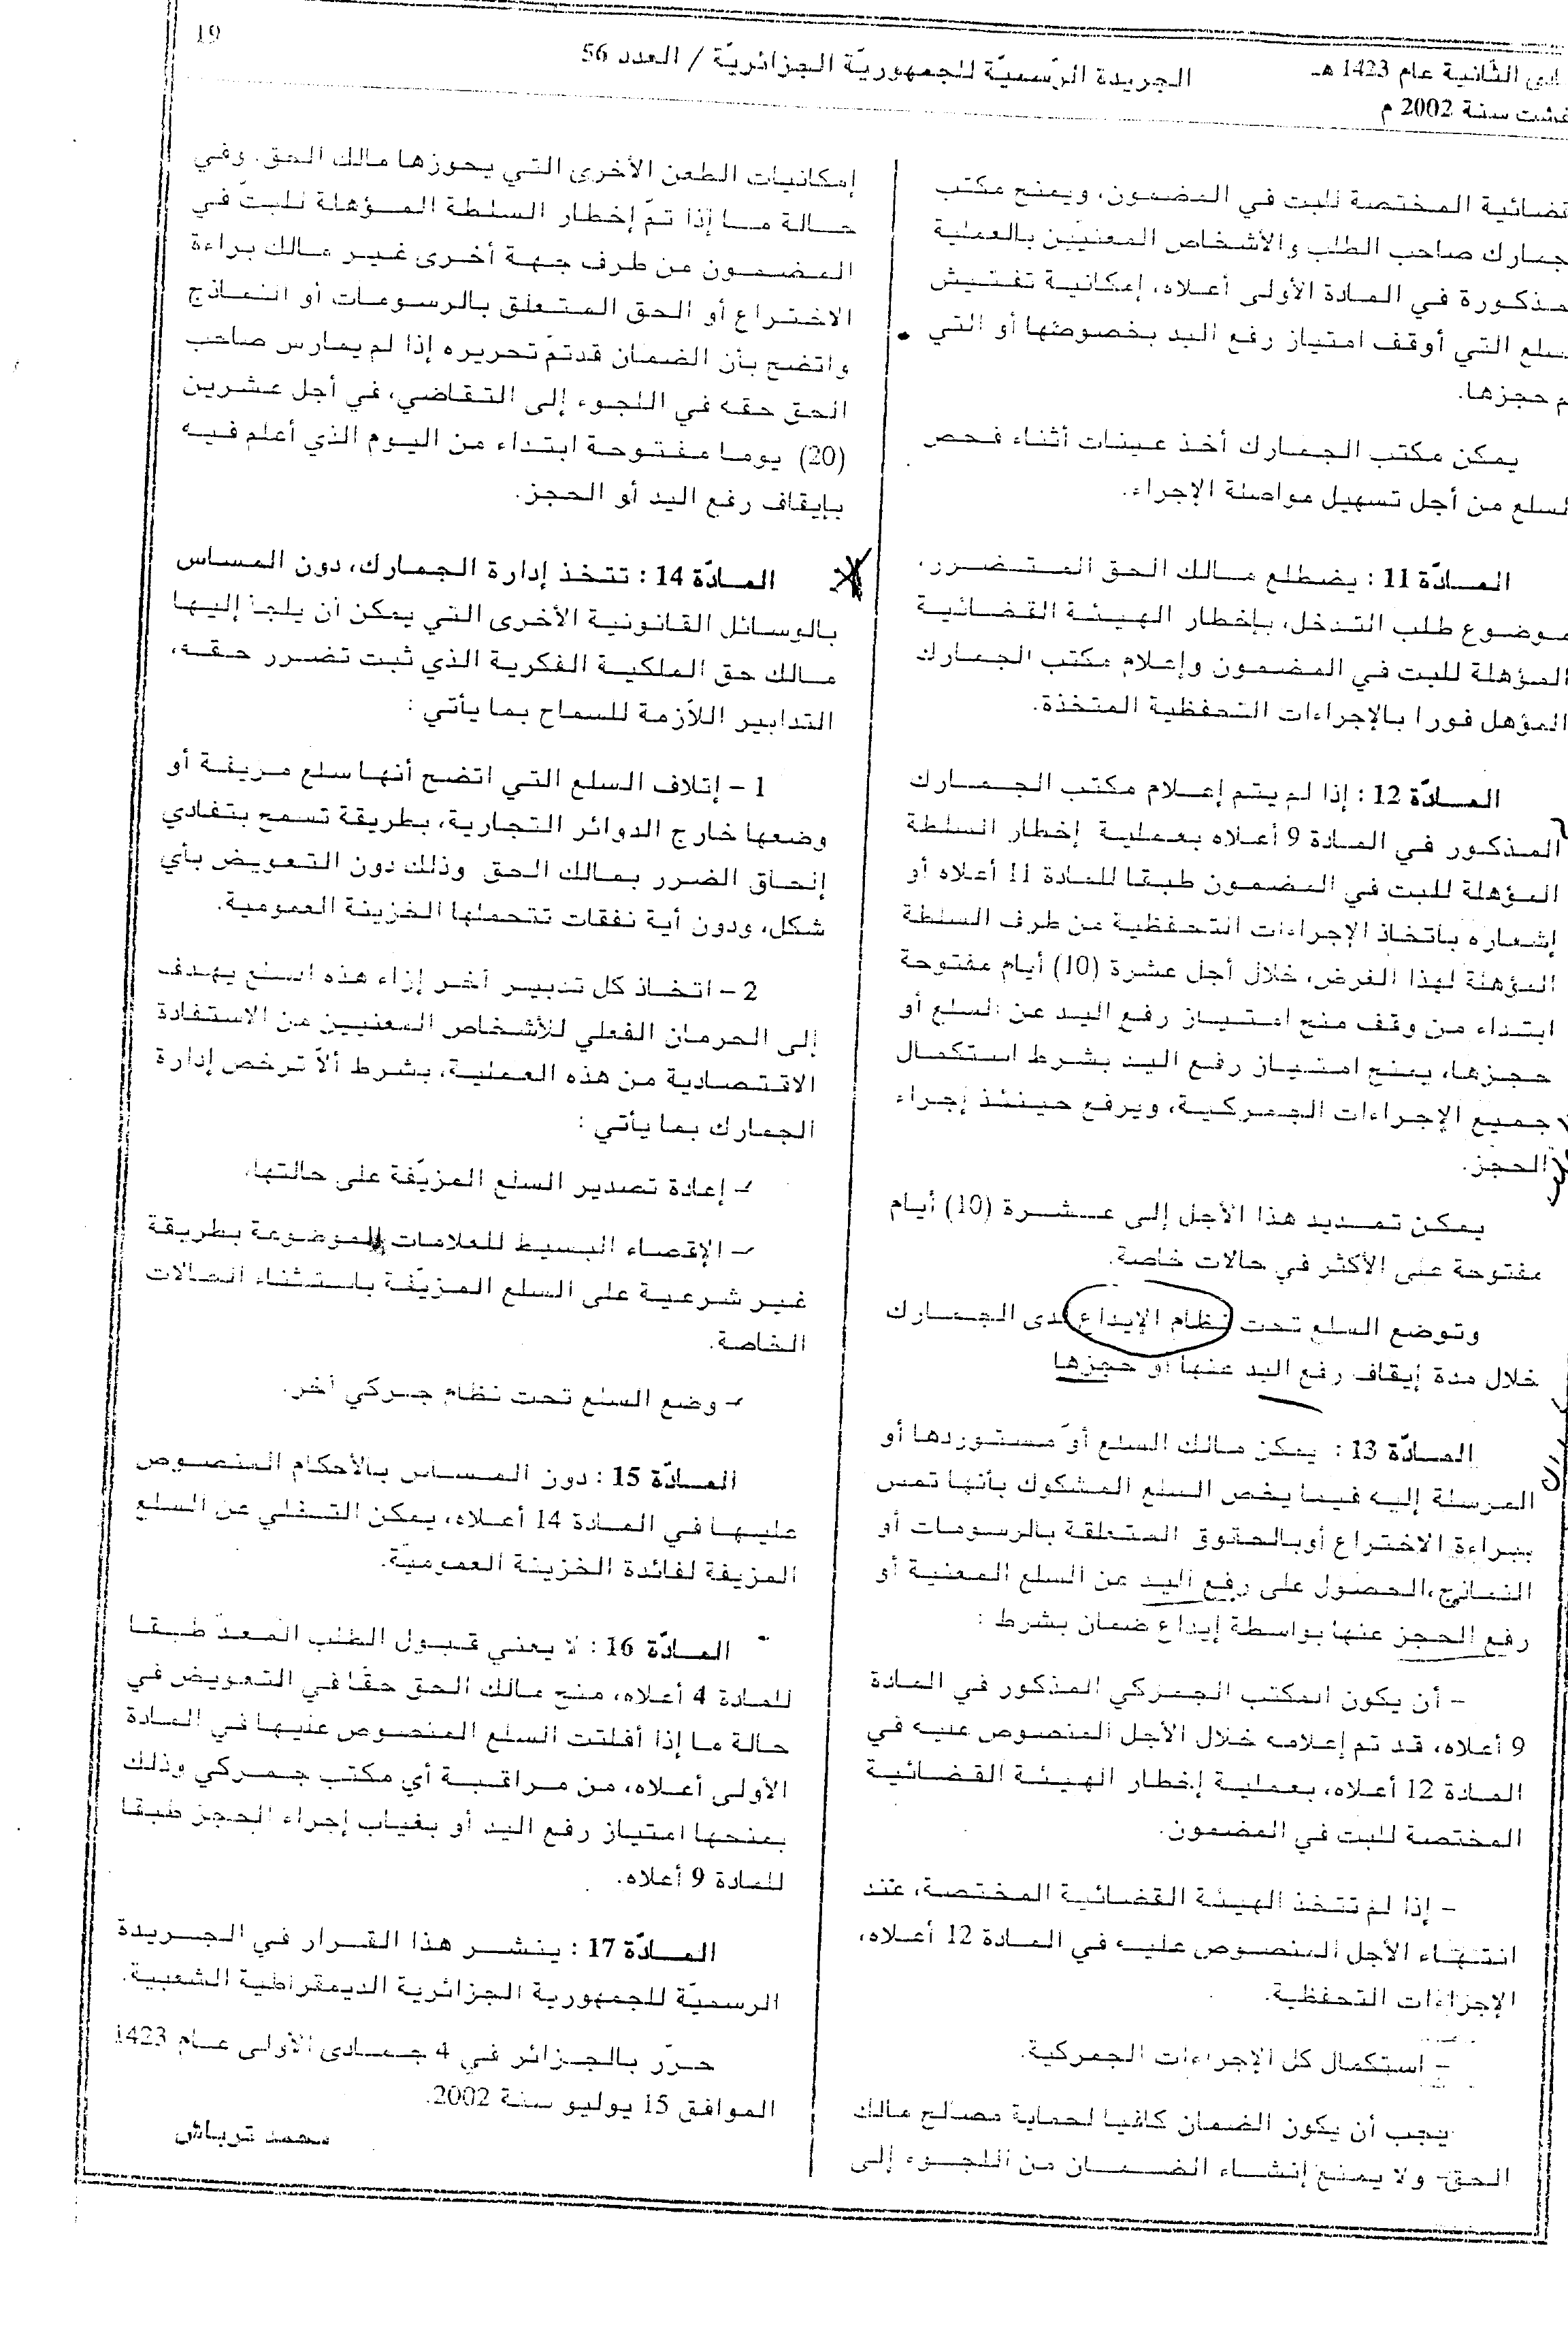 19
الجريدة الرّسميّة للجمهوريّة الجزائريّة / العدد 56
الثّانية عام 1423 هـ
غشت سنة 2002 م
المختصة للبت في المضمون، ويمنح مكتب
صاحب الطلب والأشخاص المعنيّين بالعملية
في المادة الأولى أعلاه، إمكانية تفتيش
التي أوقف امتياز رفع اليد بخصوصها أو التي
حجزها.
يمكن مكتب الجمارك أخذ عينات أثناء فحص
من أجل تسهيل مواصلة الإجراء.
المـادّة 11 : يضطلع مالك الحق المتضرر،
موضوع طلب التدخل، بإخطار الهيئة القضائية
المؤهلة للبت في المضمون وإعلام مكتب الجمارك
المؤهل فورا بالإجراءات التحفظية المتخذة.
المـادّة 12 : إذا لم يتم إعلام مكتب الجمارك
المذكور في المادة 9 أعلاه بعملية إخطار السلطة
المؤهلة للبت في المضمون طبقا للمادة 11 أعلاه أو
إشعاره باتخاذ الإجراءات التحفظية من طرف السلطة
المؤهلة لهذا الغرض، خلال أجل عشرة (10) أيام مفتوحة
ابتداء من وقف منح امتياز رفع اليد عن السلع أو
حجزها، يمنح امتياز رفع اليد بشرط استكمال
جميع الإجراءات الجمركية، ويرفع حينئذ إجراء
الحجز.
يمكن تمديد هذا الأجل إلى عشرة (10) أيام
مفتوحة على الأكثر في حالات خاصة.
وتوضع السلع تحت نظام الإيداع لدى الجمارك
خلال مدة إيقاف رفع اليد عنها أو حجزها
المـادّة 13 : يمكن مالك السلع أو مستوردها أو
المرسلة إليه فيما يخص السلع المشكوك بأنها تمس
ببراءة الاختراع أوبالحقوق المتعلقة بالرسومات أو
النماذج، الحصول على رفع اليد عن السلع المعنية أو
رفع الحجز عنها بواسطة إيداع ضمان بشرط :
– أن يكون المكتب الجمركي المذكور في المادة
9 أعلاه، قد تم إعلامه خلال الأجل المنصوص عليه في
المادة 12 أعلاه، بعملية إخطار الهيئة القضائية
المختصة للبت في المضمون.
– إذا لم تتخذ الهيئة القضائية المختصة، عند
انتهاء الأجل المنصوص عليه في المادة 12 أعلاه،
الإجراءات التحفظية.
– استكمال كل الإجراءات الجمركية.
يجب أن يكون الضمان كافيا لحماية مصالح مالك
الحق- ولا يمنع إنشاء الضمان من اللجوء إلى
إمكانيات الطعن الأخرى التي يحوزها مالك الحق. وفي
حالة ما إذا تمّ إخطار السلطة المؤهلة للبتّ في
المضمون من طرف جهة أخرى غير مالك براءة
الاختراع أو الحق المتعلق بالرسومات أو النماذج
واتضح بأن الضمان قدتمّ تحريره إذا لم يمارس صاحب
الحق حقه في اللجوء إلى التقاضي، في أجل عشرين
(20) يوما مفتوحة ابتداء من اليوم الذي أعلم فيه
بإيقاف رفع اليد أو الحجز.
المـادّة 14 : تتخذ إدارة الجمارك، دون المساس
بالوسائل القانونية الأخرى التي يمكن أن يلجأ إليها
مالك حق الملكية الفكرية الذي ثبت تضرر حقه،
التدابير اللاّزمة للسماح بما يأتي :
1 – إتلاف السلع التي اتضح أنها سلع مزيفة أو
وضعها خارج الدوائر التجارية، بطريقة تسمح بتفادي
إلحاق الضرر بمالك الحق وذلك دون التعويض بأي
شكل، ودون أية نفقات تتحملها الخزينة العمومية.
2 – اتخاذ كل تدبير آخر إزاء هذه السلع يهدف
إلى الحرمان الفعلي للأشخاص المعنيين من الاستفادة
الاقتصادية من هذه العملية، بشرط ألاّ ترخص إدارة
الجمارك بما يأتي :
– إعادة تصدير السلع المزيّفة على حالتها،
– الإقصاء البسيط للعلامات الموضوعة بطريقة
غير شرعية على السلع المزيّفة باستثناء الحالات
الخاصة.
– وضع السلع تحت نظام جمركي آخر.
المـادّة 15 : دون المساس بالأحكام المنصوص
عليها في المادة 14 أعلاه، يمكن التخلي عن السلع
المزيفة لفائدة الخزينة العموميّة.
المـادّة 16 : لا يعني قبول الطلب المعدّ طبقا
للمادة 4 أعلاه، منح مالك الحق حقّا في التعويض في
حالة ما إذا أفلتت السلع المنصوص عليها في المادة
الأولى أعلاه، من مراقبة أي مكتب جمركي وذلك
بمنحها امتياز رفع اليد أو بغياب إجراء الحجز طبقا
للمادة 9 أعلاه.
المـادّة 17 : ينشر هذا القرار في الجريدة
الرسميّة للجمهورية الجزائرية الديمقراطية الشعبية.
حرّر بالجزائر في 4 جمادى الأولى عام 1423
الموافق 15 يوليو سنة 2002.
محمد ترباش